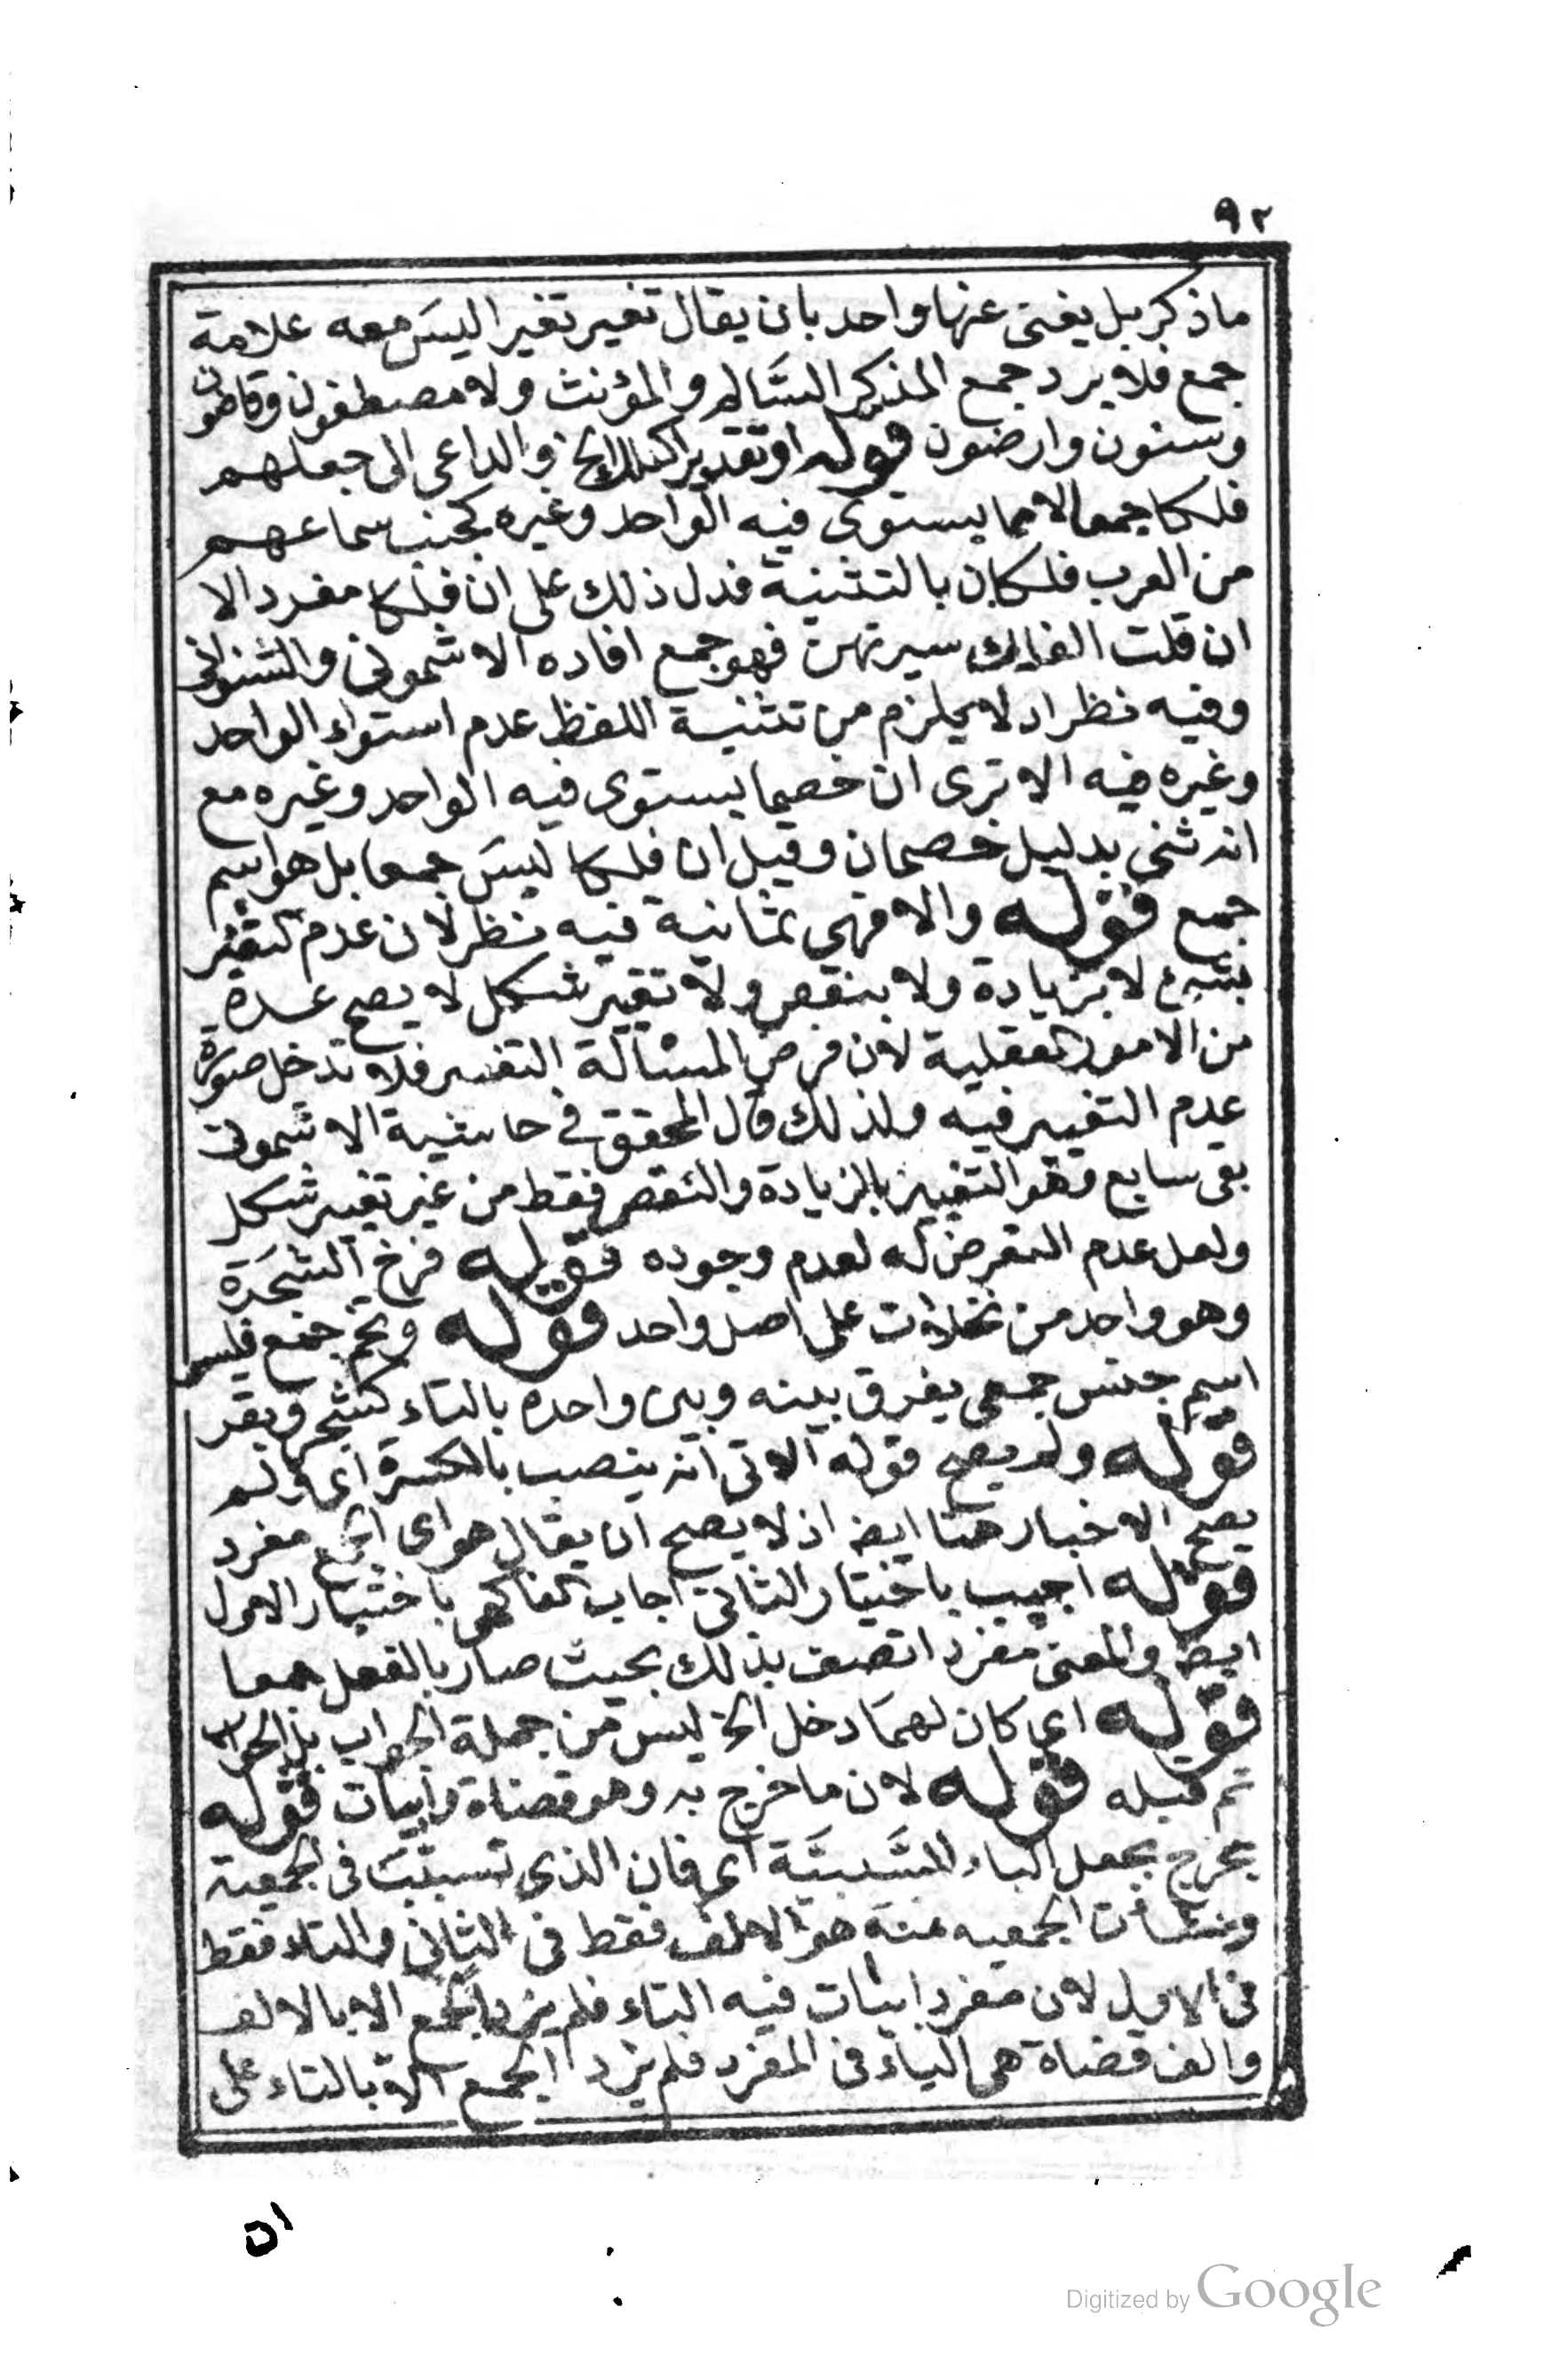 ٩٢
ما ذكر بل يغنى عنها واحد بان يقال تغير تغيرا ليس معه علامة
جمع فلا يرد جمع المذكر السالم والمؤنث ولا مصطفون وقاضون
وسنون وارضون قوله او تقديرا كفلك الخ والداعى الى جعلهم
فلكا جمعا لا مما يستوى فيه الواحد وغيره كجنب سماعهم
من العرب فلكان بالتثنية فدل ذلك على ان فلكا مفرد الا
ان قلت الفلك سيرتهن فهو جمع افاده الاشمونى والشنوانى
وفيه نظر اذ لا يلزم من تثنية اللفظ عدم استواء الواحد
وغيره فيه الا ترى ان خصما يستوى فيه الواحد وغيره مع
انه ثنى بدليل خصمان وقيل ان فلكا ليس جمعا بل هو اسم
جمع قوله والا فهى ثمانية فيه نظر لان عدم التغير
بشئ لا بزيادة ولا بنقص ولا تغير شكل لا يصح عده
من الامور العقلية لان فرض المسئالة التغير فلا تدخل صورة
عدم التغيير فيه ولذلك قال المحقق فى حاشية الاشمونى
بقى سابع وهو التغيير بالزيادة والنقص فقط من غير تغيير شكل
ولعل عدم التعرض له لعدم وجوده قوله فرخ الشجرة
وهو واحد من نخلات على اصل واحد قوله وتخم جمع فليس
اسم جنس جمعى يفرق بينه وبين واحده بالتاء كشجر وبقر
قوله ولم يصح قوله الاتى انه ينصب بالكسرة اى ولم
يصح الاخبار هنا ايضا اذ لا يصح ان يقال هو اى الجمع مفرد
قوله اجيب باختيار الثانى اجاب الفاكهى باختيار الاول
ايضا والمعنى مفرد اتصف بذلك بحيث صار بالفعل جمعا
قوله اى كان لهما دخل الخ ليس من جملة الجواب بل الجواب
تم قبله قوله لان ما خرج به وهو قضاة وابيات قوله
يخرج بجعل الباء للسببية اى فان الذى تسبب فى الجمعية
ونشات الجمعيه عنه هو الالف فقط فى الثانى والتاء فقط
فى الاول لان مفرد ابيات فيه التاء فلم يزد الجمع الا بالالف
والف قضاة هى الياء فى المفرد فلم يزد الجمع الا بالتاء على
٥١
Digitized by Google